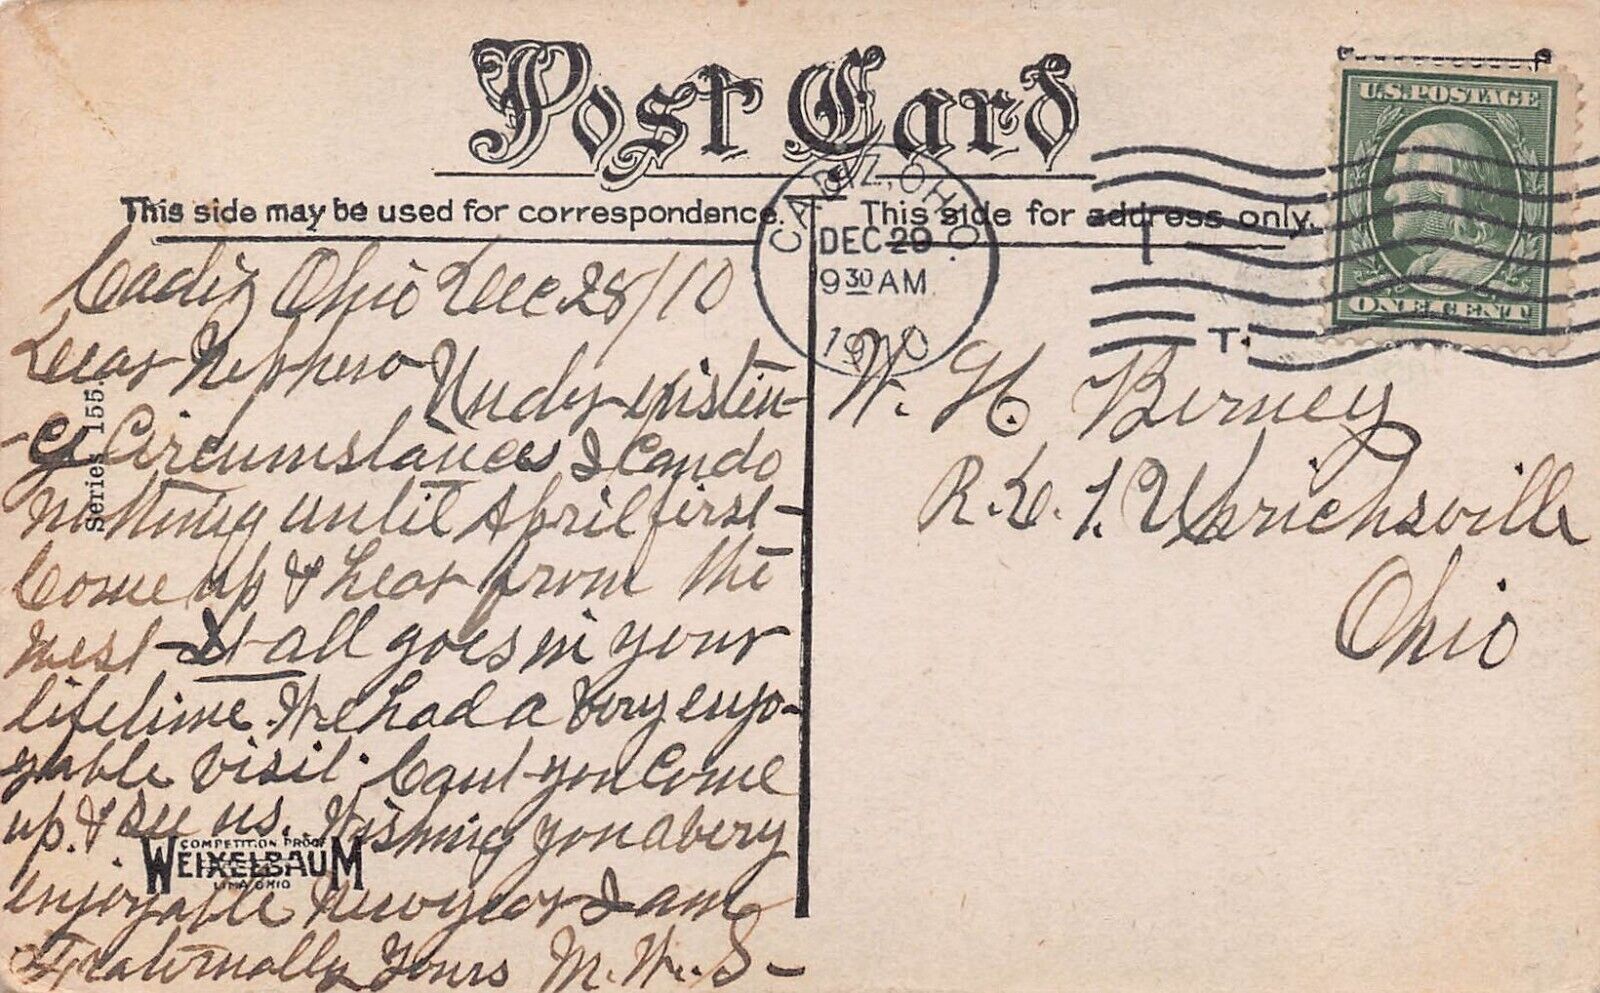 Post Card
This side may be used for correspondence.
This side for address only.
U.S. POSTAGE
ONE CENT
CADIZ, OHIO
DEC 29
9 30 AM
1910
Cadiz Ohio Dec 28/10
Dear Nephew
Undr existin-
-g Circumstances I Can do
nothing until April first-
Come up & hear from the
West - It all goes in your
lifetime. We had a very enjo-
yable visit. Cant you Come
up. & see us. Wishing you a very
enjoyable New year I am
Fraternally Yours M. W. S-
Series 155.
COMPETITION PROOF
WEIXELBAUM
LIMA OHIO
W. H. Birney
R. D. 1. Uhrichsville
Ohio